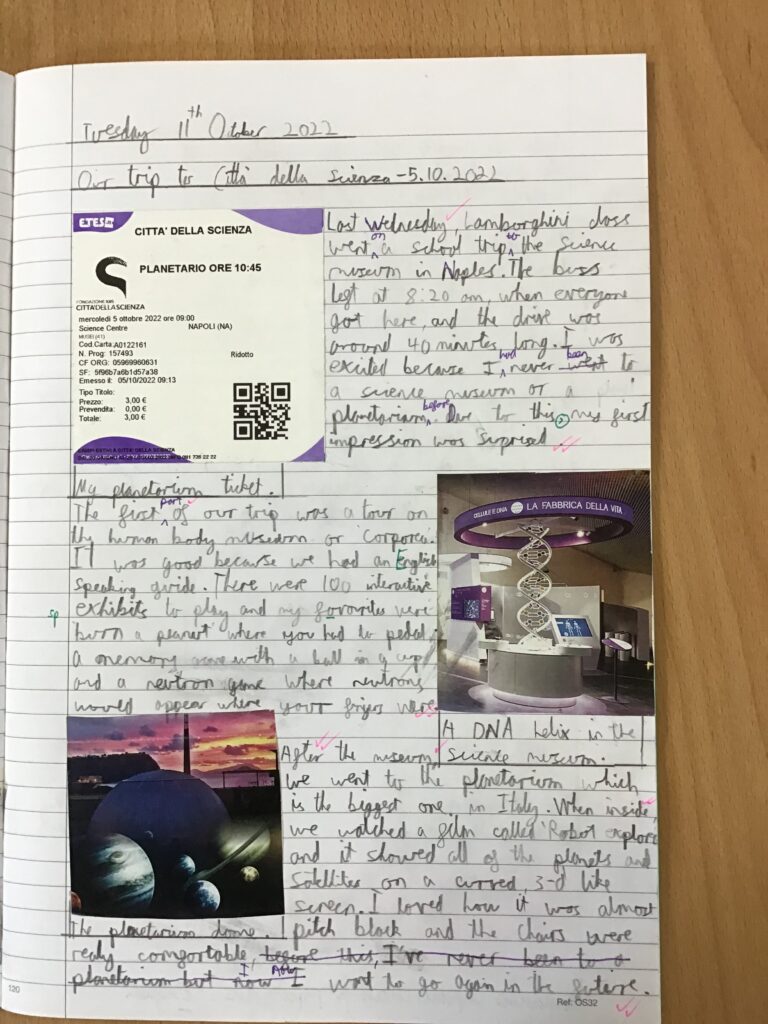 Tuesday 11th October 2022
Our trip to Città della Scienza - 5.10.2022
EJESOM
CITTA' DELLA SCIENZA
PLANETARIO ORE 10:45
FONDAZIONE IDIS
CITTÀDELLASCIENZA
mercoledì 5 ottobre 2022 ore 09:00
Science Centre NAPOLI (NA)
MUSEI (41)
Cod.Carta:A0122161
N. Prog: 157493 Ridotto
CF ORG: 05969960631
SF: 5f96b7a6b1d57a38
Emesso il: 05/10/2022 09:13
Tipo Titolo:
Prezzo: 3,00 €
Prevendita: 0,00 €
Totale: 3,00 €
Last Wednesday, Lamborghini class
went on a school trip to the science
museum in Naples. The buss
left at 8:20 am, when everyone
got here, and the drive was
around 40 minutes long. I was
exited because I had never went been to
a science museum or a
planetarium before. Due to this, my first
impression was surprised.
My planetarium ticket.
The first part of our trip was a tour on
the human body museum or 'corporea'.
It was good because we had an English
speaking guide. There were 100 interactive
sp
exhibits to play and my favorites were
'burn a peanut' where you had to pedal,
a memory game with a ball in a cup
and a neutron game where neutrons
would appear where your fingers were.
CELLULE E DNA LA FABBRICA DELLA VITA
A DNA helix in the
science museum.
After the museum,
we went to the planetarium which
is the biggest one in Italy. When inside,
we watched a film called 'Robot explore
and it showed all of the planets and
satellites on a curved, 3-d like
screen. I loved how it was almost
The planetarium dome.
pitch black and the chairs were
realy comfortable, before this, I've never been to a
planetarium but now I Now I want to go again in the future.
120
Ref: OS32